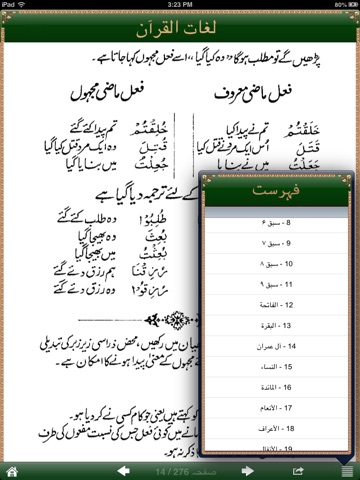 iPad
3:23 PM
93%
لغات القرآن
پڑھیں گے تو مطلب ہوگا وہ کیا گیا، اسے فعل مجہول کہا جاتا ہے۔
فعل ماضی معروف
فعل ماضی مجہول
خَلَقْتُمْ تم نے پیدا کیا
خُلِقْتُمْ تم پیدا کئے گئے
قَتَلَ اُس ایک مرد نے قتل کیا
قُتِلَ وہ ایک مرد قتل کیا گیا
جَعَلْتُ میں نے بنایا
جُعِلْتُ میں بنایا گیا
کے لئے ترجمہ دیا گیا ہے
طُلِبُوْا وہ طلب کئے گئے
بُعِثَ وہ بھیجا گیا
بُعِثْتُ میں بھیجا گیا
رُزِقْنَا ہم رزق دئے گئے
رُزِقُوْا وہ رزق دئے گئے
یان میں رکھیں، محض ذرا سی زیر زبر کی تبدیلی
مجہول کے معنیٰ پیدا ہونے کا امکان ہے۔
کہتے ہیں جو کام کسی نے کر دیا ہو۔
مانے میں کوئی فعل جس کی نسبت مفعول کی طرف
ذکر نہ ہو۔
فہرست
8 - سبق ۶
9 - سبق ۷
10 - سبق ۸
11 - سبق ۹
12 - الفاتحة
13 - البقرة
14 - آل عمران
15 - النساء
16 - المائدة
17 - الأنعام
18 - الأعراف
19 - الأنفال
صفحہ 276 / 14